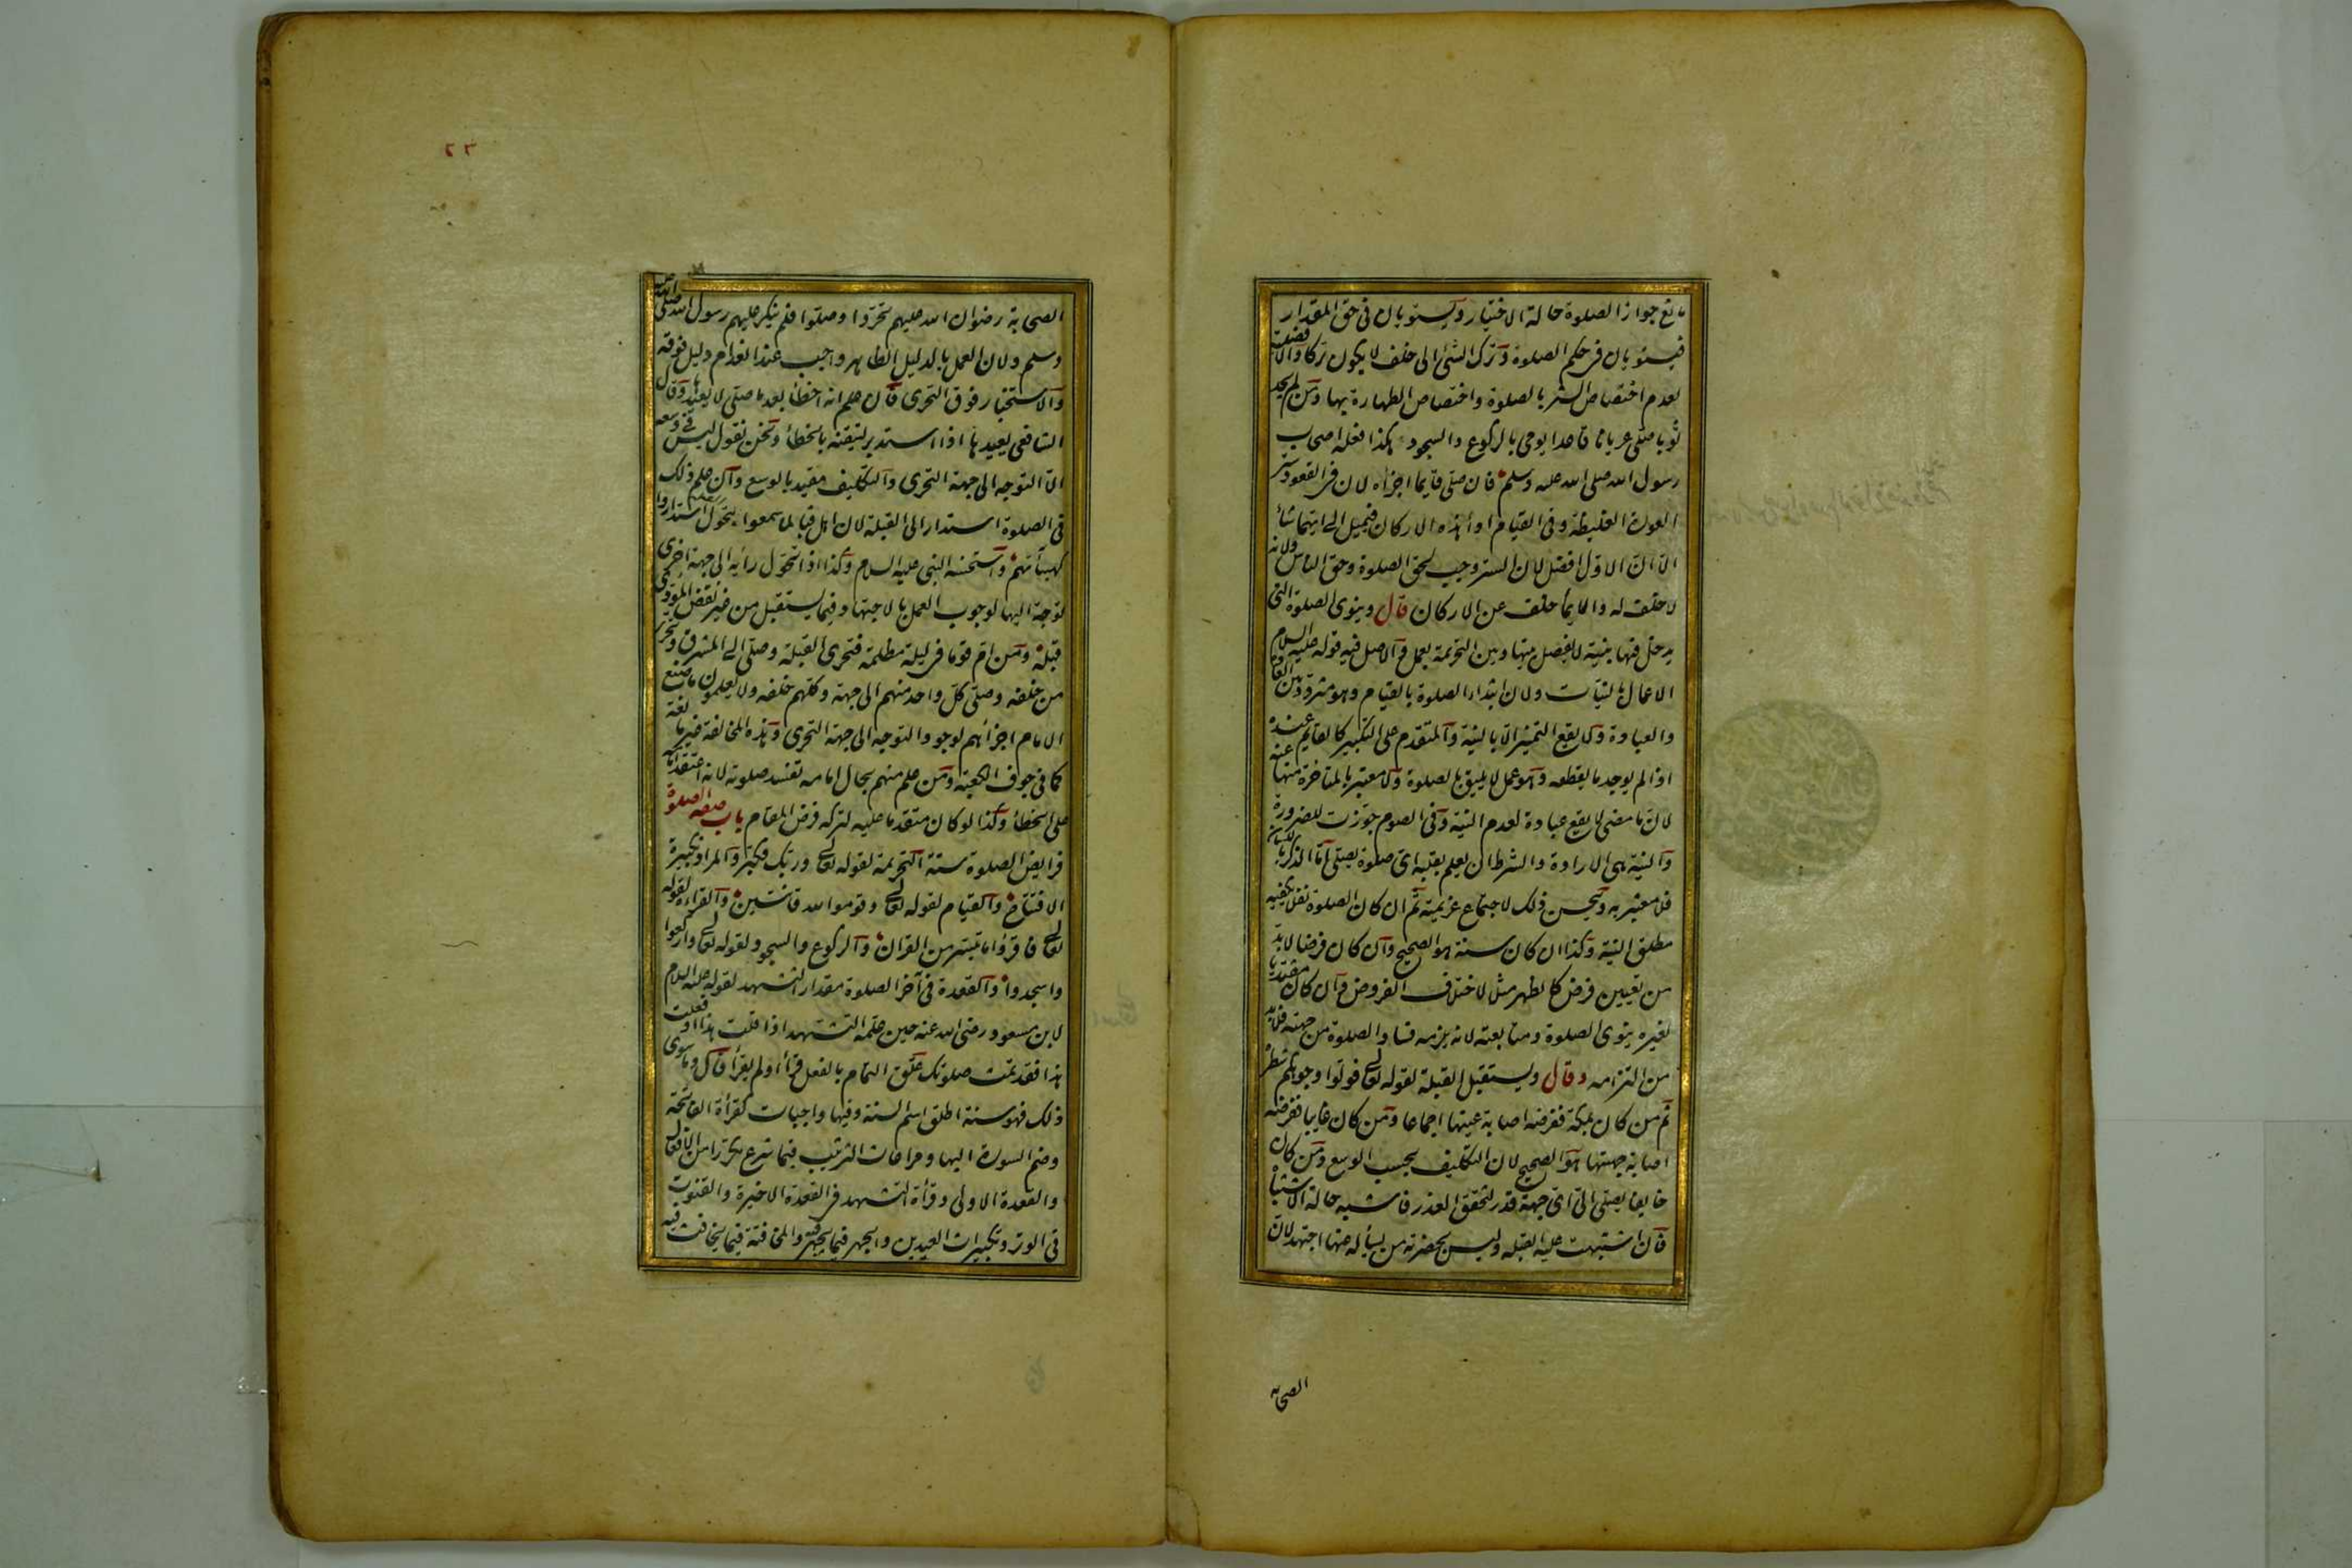 مانع جواز الصلوة حالة الاختيار ويستويان فى حق المقدار
فيستويان فى حكم الصلوة وترك الشئ الى خلف لا يكون تركا والافضلية
لعدم اختصاص الستر بالصلوة واختصاص الطهارة بها ومن لم يجد
ثوبا صلى عريانا قاعدا يومى بالركوع والسجود هكذا فعله اصحاب
رسول الله صلى الله عليه وسلم فان صلى قايما اجزأه لان فى القعود ستر
العورة الغليظة وفى القيام اداء هذه الاركان فيميل الى ايهما شأ
الا ان الاول افضل لان الستر وجب لحق الصلوة وحق الناس ولانه
لا خلف له والايمأ خلف عن الاركان قال وينوى الصلوة التى
يدخل فيها بنية لا يفصل بينها وبين التحريمة بعمل والاصل فيه قوله عليه السلام
الاعمال بالنيات ولان ابتداء الصلوة بالقيام وهو متردد بين العادة
والعبادة ولا يقع التميز الا بالنية والمتقدم على التكبير كالقايم عنده
اذا لم يوجد ما يقطعه وهو عمل لا يليق بالصلوة ولا معتبر بالمتاخرة منها عنه
لان ما مضى لا يقع عبادة لعدم النية وفى الصوم جوزت للضرورة
والنية هى الارادة والشرط ان يعلم بقلبه اى صلوة يصلى اما الذكر باللسان
فلا معتبر به ويحسن ذلك لاجتماع عزيمته ثم ان كان الصلوة نفلا يكفيه
مطلق النية وكذا ان كان سنة هو الصحيح وان كان فرضا لا بد
من تعيين فرض كالظهر مثلا لاختلاف الفروض وان كان مقتديا
لغيره ينوى الصلوة ومتابعته لانه يلزمه فساد الصلوة من جهته فلا بد
من التزامه وقال ويستقبل القبلة لقوله تعالى فولوا وجوهكم شطره
ثم من كان بمكة ففرضه اصابة عينها اجماعا ومن كان غايبا ففرضه
اصابة جهتها هو الصحيح لان التكليف بحسب الوسع ومن كان
خايفا يصلى الى اى جهة قدر لتحقق العذر فاشبه حالة الاشتباه
فان اشتبهت عليه القبلة وليس بحضرته من يسأله عنها اجتهد لان
الصحابة
٢٣
الصحابة رضوان الله عليهم تحروا وصلوا فلم ينكر عليهم رسول الله صلى الله عليه
وسلم ولان العمل بالدليل الظاهر واجب عند انعدام دليل فوقه
والاستخبار فوق التحرى فان علم انه اخطأ بعد ما صلى لا يعيدها وقال
الشافعى يعيدها اذا استدبر لتيقنه بالخطأ ونحن نقول ليس فى وسعه
الا التوجه الى جهة التحرى والتكليف مقيد بالوسع وان علم ذلك
فى الصلوة استدار الى القبلة لان اهل قبا لما سمعوا بتحول القبلة استداروا
كهيئاتهم واستحسنه النبى عليه السلام وكذا اذا تحول رأيه الى جهة اخرى
توجه اليها لوجوب العمل بالاجتهاد فيما يستقبل من غير نقض المؤدى
قبله ومن ام قوما فى ليلة مظلمة فتحرى القبلة وصلى الى المشرق وتحرى
من خلفه وصلى كل واحد منهم الى جهة وكلهم خلفه ولا يعلمون ما صنع
الامام اجزأهم لوجود التوجه الى جهة التحرى وهذه المخالفة غير مانعة
كما فى جوف الكعبة ومن علم منهم بحال امامه تفسد صلوته لانه اعتقد امامه
على الخطأ وكذا لو كان متقدما عليه لتركه فرض المقام باب صفة الصلوة
فرايض الصلوة ستة التحريمة لقوله تعالى وربك فكبر والمراد تكبيرة
الافتتاح والقيام لقوله تعالى وقوموا لله قانتين والقراءة لقوله
تعالى فاقرؤا ما تيسر من القران والركوع والسجود لقوله تعالى واركعوا
واسجدوا والقعدة فى آخر الصلوة مقدار التشهد لقوله عليه السلام
لابن مسعود رضى الله عنه حين علمه التشهد اذا قلت هذا او فعلت
هذا فقد تمت صلوتك علق التمام بالفعل قرأ او لم يقرأ قال وما سوى
ذلك فهو سنة اطلق اسم السنة وفيها واجبات كقرأة الفاتحة
وضم السورة اليها ومراعات الترتيب فيما شرع مكررا من الافعال
والقعدة الاولى وقرأة التشهد فى القعدة الاخيرة والقنوت
فى الوتر وتكبيرات العيدين والجهر فيما يجهر والمخافتة فيما يخافت فيه